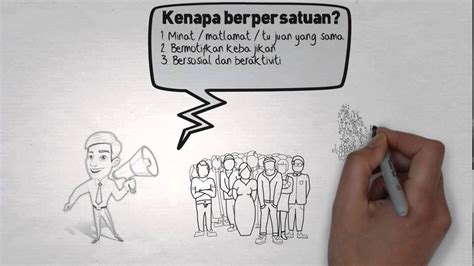 Kenapa berpersatuan?
1 Minat / matlamat / tujuan yang sama
2 Bermotifkan kebajikan
3 Bersosial dan beraktiviti